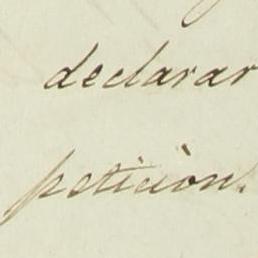 declarar
peticiòn.